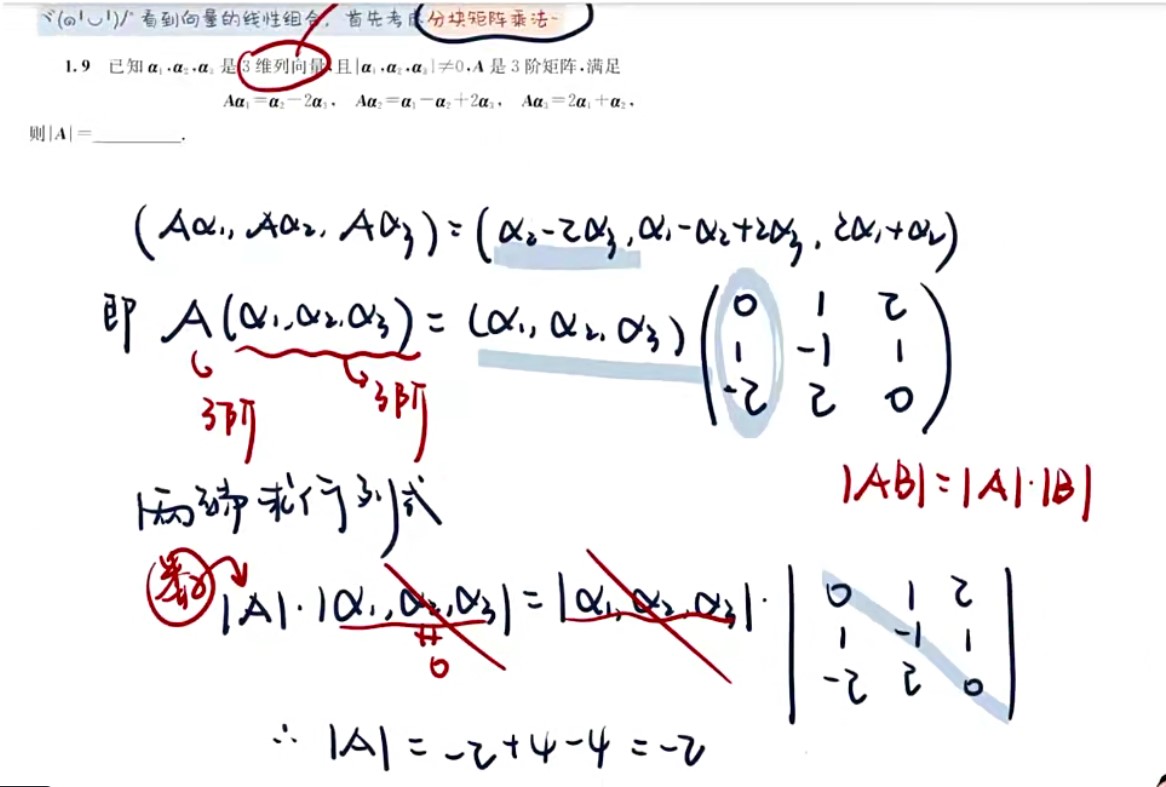 ヾ(๑╹◡╹)ﾉ" 看到向量的线性组合,首先考虑分块矩阵乘法~
1.9 已知 α₁,α₂,α₃ 是 3 维列向量,且|α₁,α₂,α₃|≠0,A 是 3 阶矩阵,满足
Aα₁=α₂-2α₃, Aα₂=α₁-α₂+2α₃, Aα₃=2α₁+α₂,
则|A|=________.
(Aα₁, Aα₂, Aα₃) = (α₂-2α₃, α₁-α₂+2α₃, 2α₁+α₂)
即 A(α₁,α₂,α₃) = (α₁, α₂, α₃)
0 1 2
1 -1 1
-2 2 0
3阶 3阶
|AB|=|A|·|B|
两端求行列式
|A|·|α₁,α₂,α₃| = |α₁,α₂,α₃|·
≠
0
0 1 2
1 -1 1
-2 2 0
∴ |A| = -2+4-4 = -2